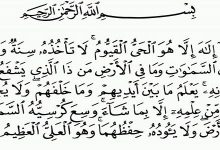 بِسْمِ اللَّهِ الرَّحْمَٰنِ الرَّحِيمِ
إِلَٰهَ إِلَّا هُوَ الْحَيُّ الْقَيُّومُ ۚ لَا تَأْخُذُهُ سِنَةٌ وَ
السَّمَاوَاتِ وَمَا فِي الْأَرْضِ ۗ مَن ذَا الَّذِي يَشْفَعُ
نِهِ ۚ يَعْلَمُ مَا بَيْنَ أَيْدِيهِمْ وَمَا خَلْفَهُمْ ۖ وَلَا يُ
مِنْ عِلْمِهِ إِلَّا بِمَا شَاءَ ۚ وَسِعَ كُرْسِيُّهُ السَّمَ
رْضَ ۖ وَلَا يَئُودُهُ حِفْظُهُمَا ۚ وَهُوَ الْعَلِيُّ الْعَظِيمُ